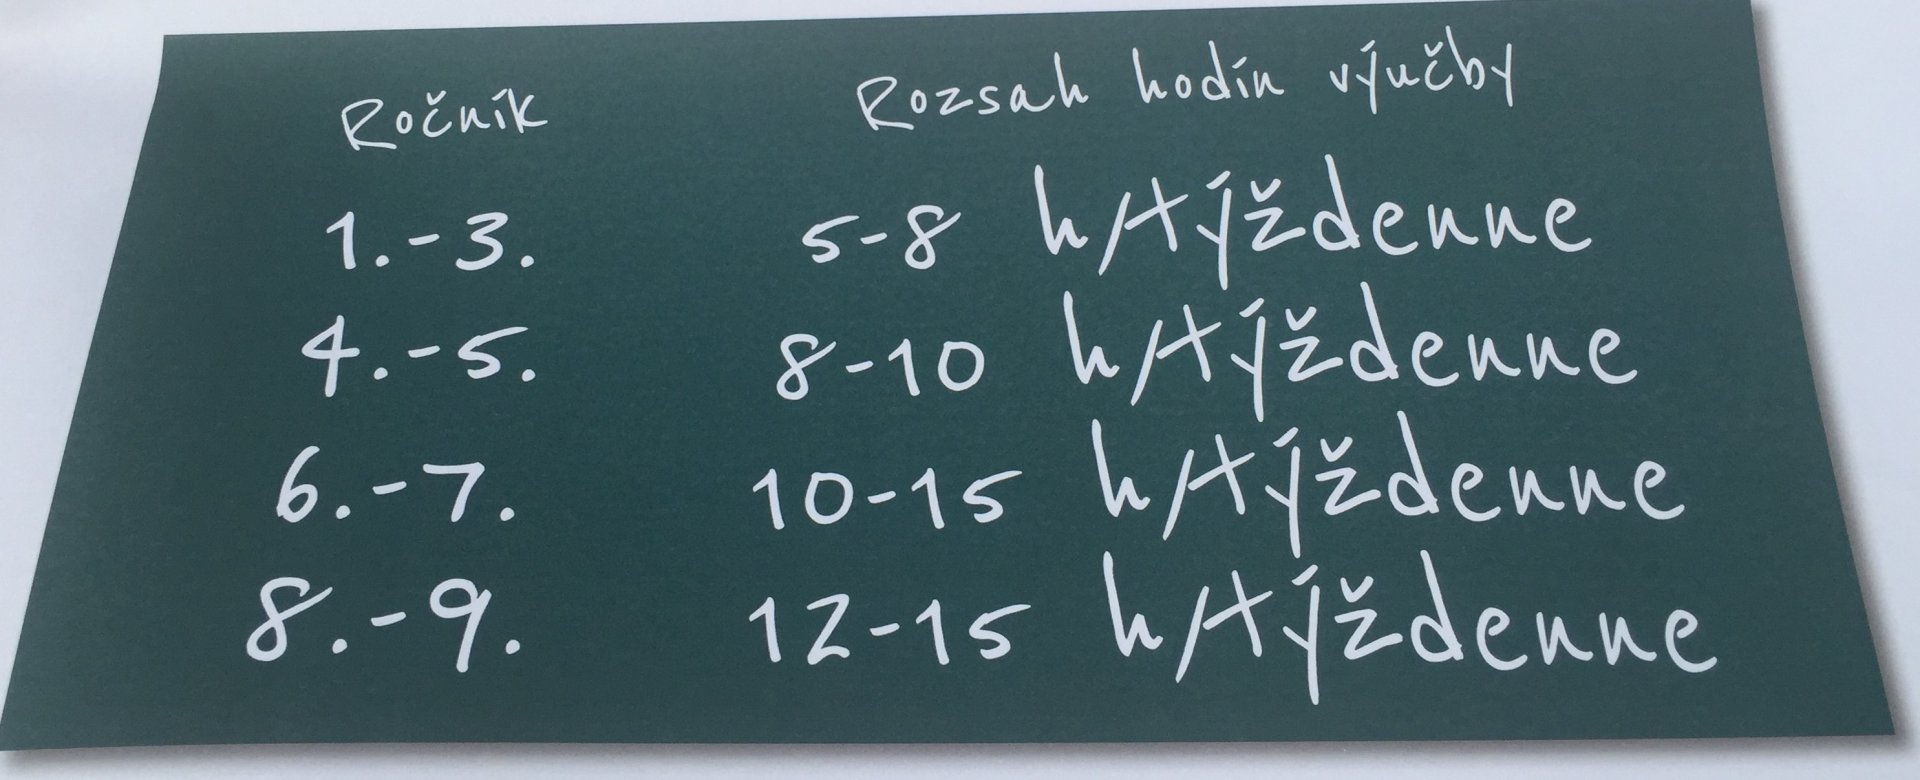 Ročník Rozsah hodín výučby
1.-3. 5-8 h/týždenne
4.-5. 8-10 h/týždenne
6.-7. 10-15 h/týždenne
8.-9. 12-15 h/týždenne